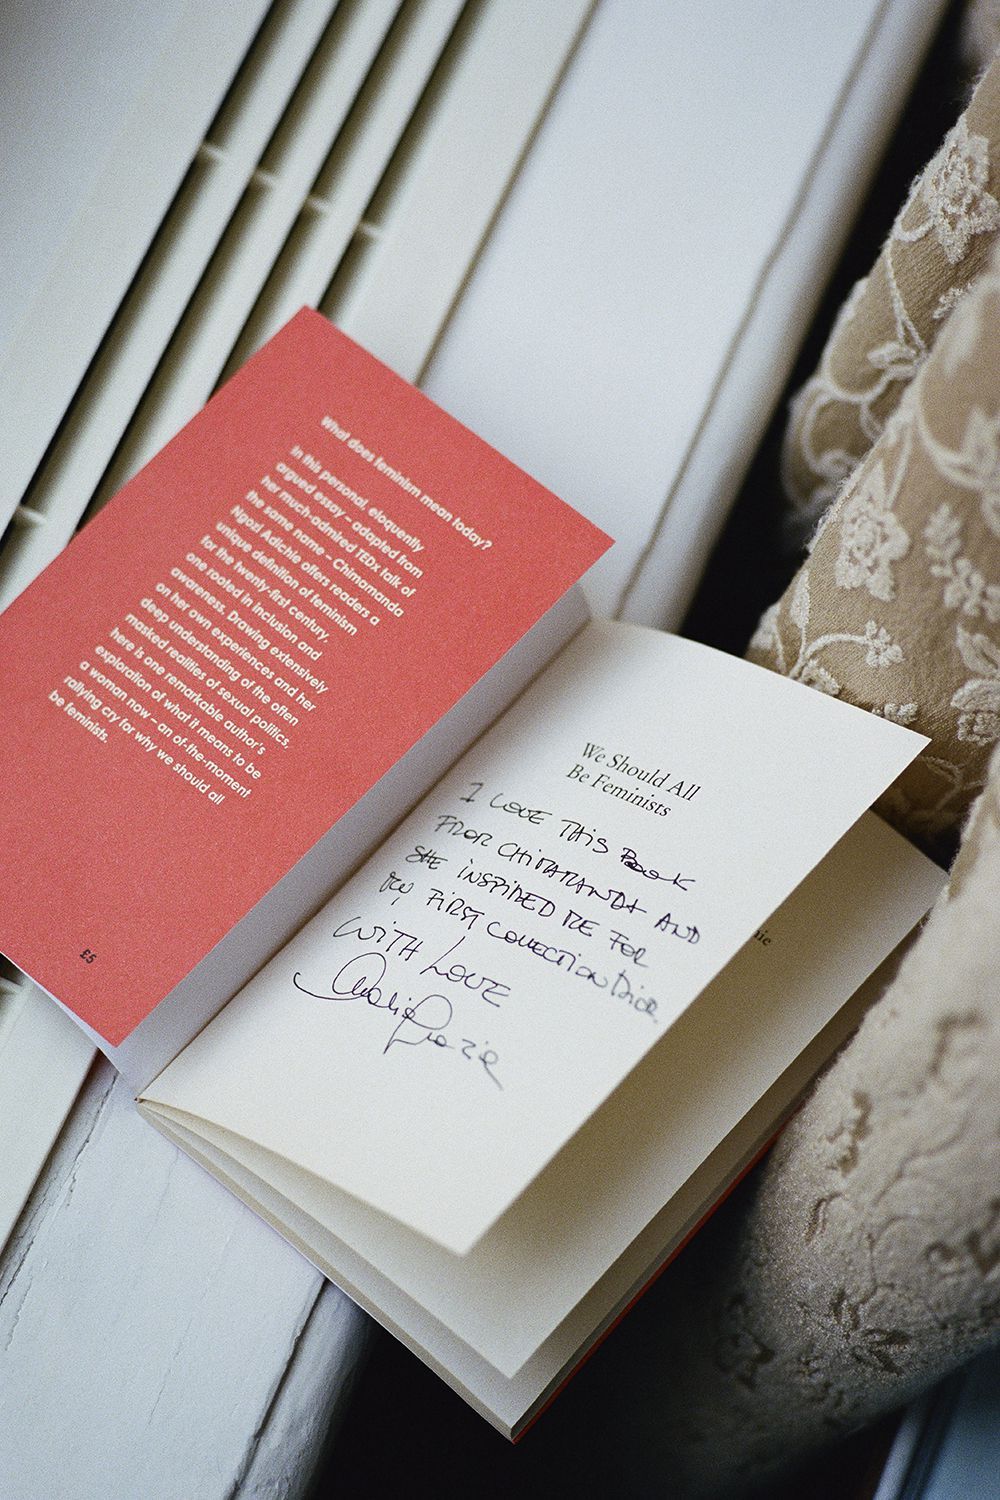 What does feminism mean today?
In this personal, eloquently
argued essay – adapted from
her much-admired TEDx talk of
the same name – Chimamanda
Ngozi Adichie offers readers a
unique definition of feminism
for the twenty-first century,
one rooted in inclusion and
awareness. Drawing extensively
on her own experiences and her
deep understanding of the often
masked realities of sexual politics,
here is one remarkable author's
exploration of what it means to be
a woman now – an of-the-moment
rallying cry for why we should all
be feminists.
£5
We Should All
Be Feminists
I LOVE THIS BOOK
FROM CHIMAMANDA AND
SHE INSPIRED ME FOR
MY FIRST COLLECTION DIOR
WITH LOVE
Maria Grazia